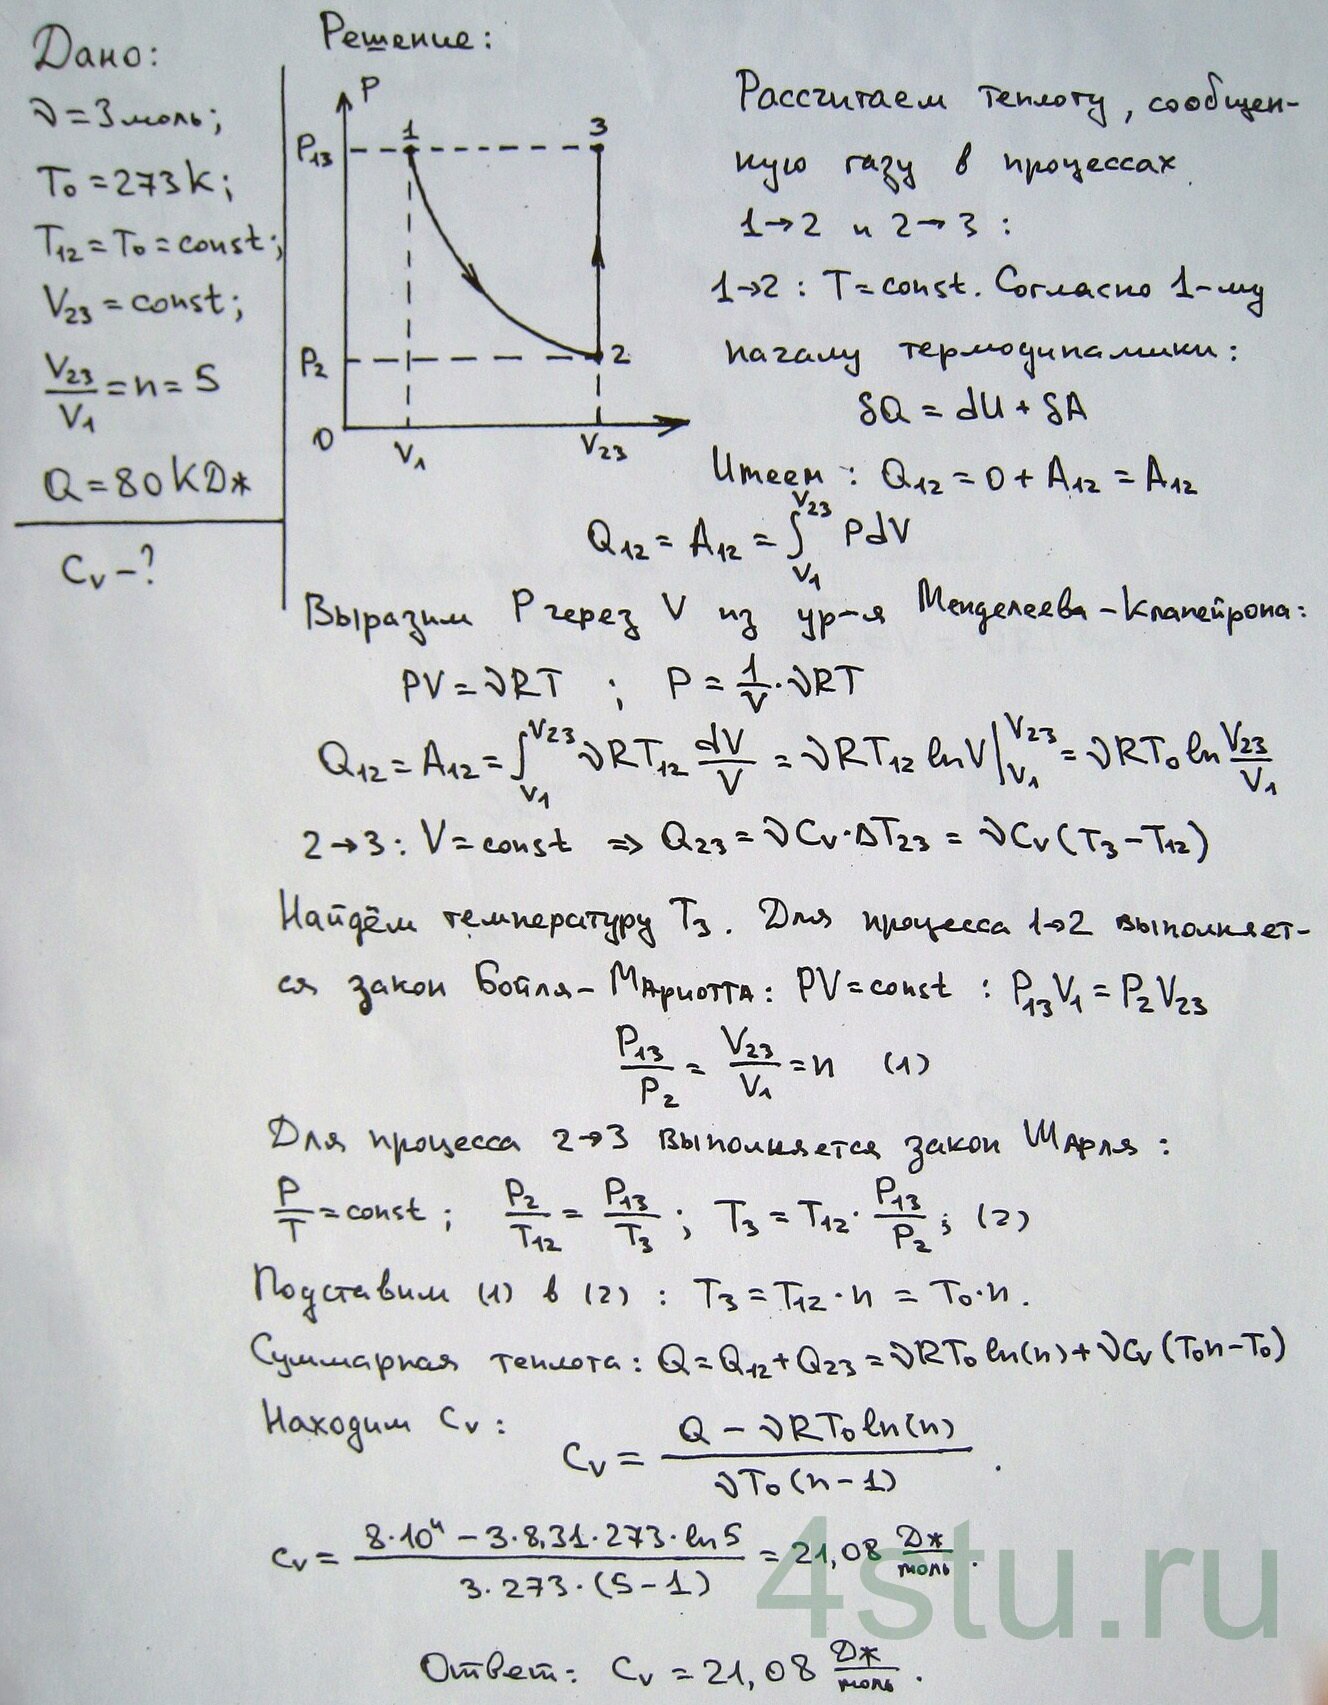 Дано:
ν = 3 моль;
T₀ = 273 K;
T₁₂ = T₀ = const;
V₂₃ = const;
V₂₃/V₁ = n = 5
Q = 80 кДж
Cᵥ - ?
Решение:
P
P₁₃
1
3
P₂
2
0
V₁
V₂₃
Рассчитаем теплоту, сообщен-
ную газу в процессах
1→2 и 2→3:
1→2: T = const. Согласно 1-му
началу термодинамики:
δQ = dU + δA
Имеем: Q₁₂ = 0 + A₁₂ = A₁₂
Q₁₂ = A₁₂ = ∫_{V₁}^{V₂₃} PdV
Выразим P через V из ур-я Менделеева-Клапейрона:
PV = νRT ; P = 1/V · νRT
Q₁₂ = A₁₂ = ∫_{V₁}^{V₂₃} νRT₁₂ dV/V = νRT₁₂ lnV |_{V₁}^{V₂₃} = νRT₀ ln V₂₃/V₁
2→3: V = const ⇒ Q₂₃ = νCᵥ·ΔT₂₃ = νCᵥ(T₃ - T₁₂)
Найдём температуру T₃. Для процесса 1→2 выполняет-
ся закон Бойля-Мариотта: PV = const : P₁₃V₁ = P₂V₂₃
P₁₃/P₂ = V₂₃/V₁ = n (1)
Для процесса 2→3 выполняется закон Шарля:
P/T = const ; P₂/T₁₂ = P₁₃/T₃ ; T₃ = T₁₂ · P₁₃/P₂ ; (2)
Подставим (1) в (2) : T₃ = T₁₂·n = T₀·n.
Суммарная теплота: Q = Q₁₂ + Q₂₃ = νRT₀ ln(n) + νCᵥ(T₀n - T₀)
Находим Cᵥ:
Cᵥ = (Q - νRT₀ ln(n))/(νT₀(n - 1)).
Cᵥ = (8·10⁴ - 3·8,31·273·ln5)/(3·273·(5 - 1)) = 21,08 Дж/моль.
Ответ: Cᵥ = 21,08 Дж/моль.
4stu.ru